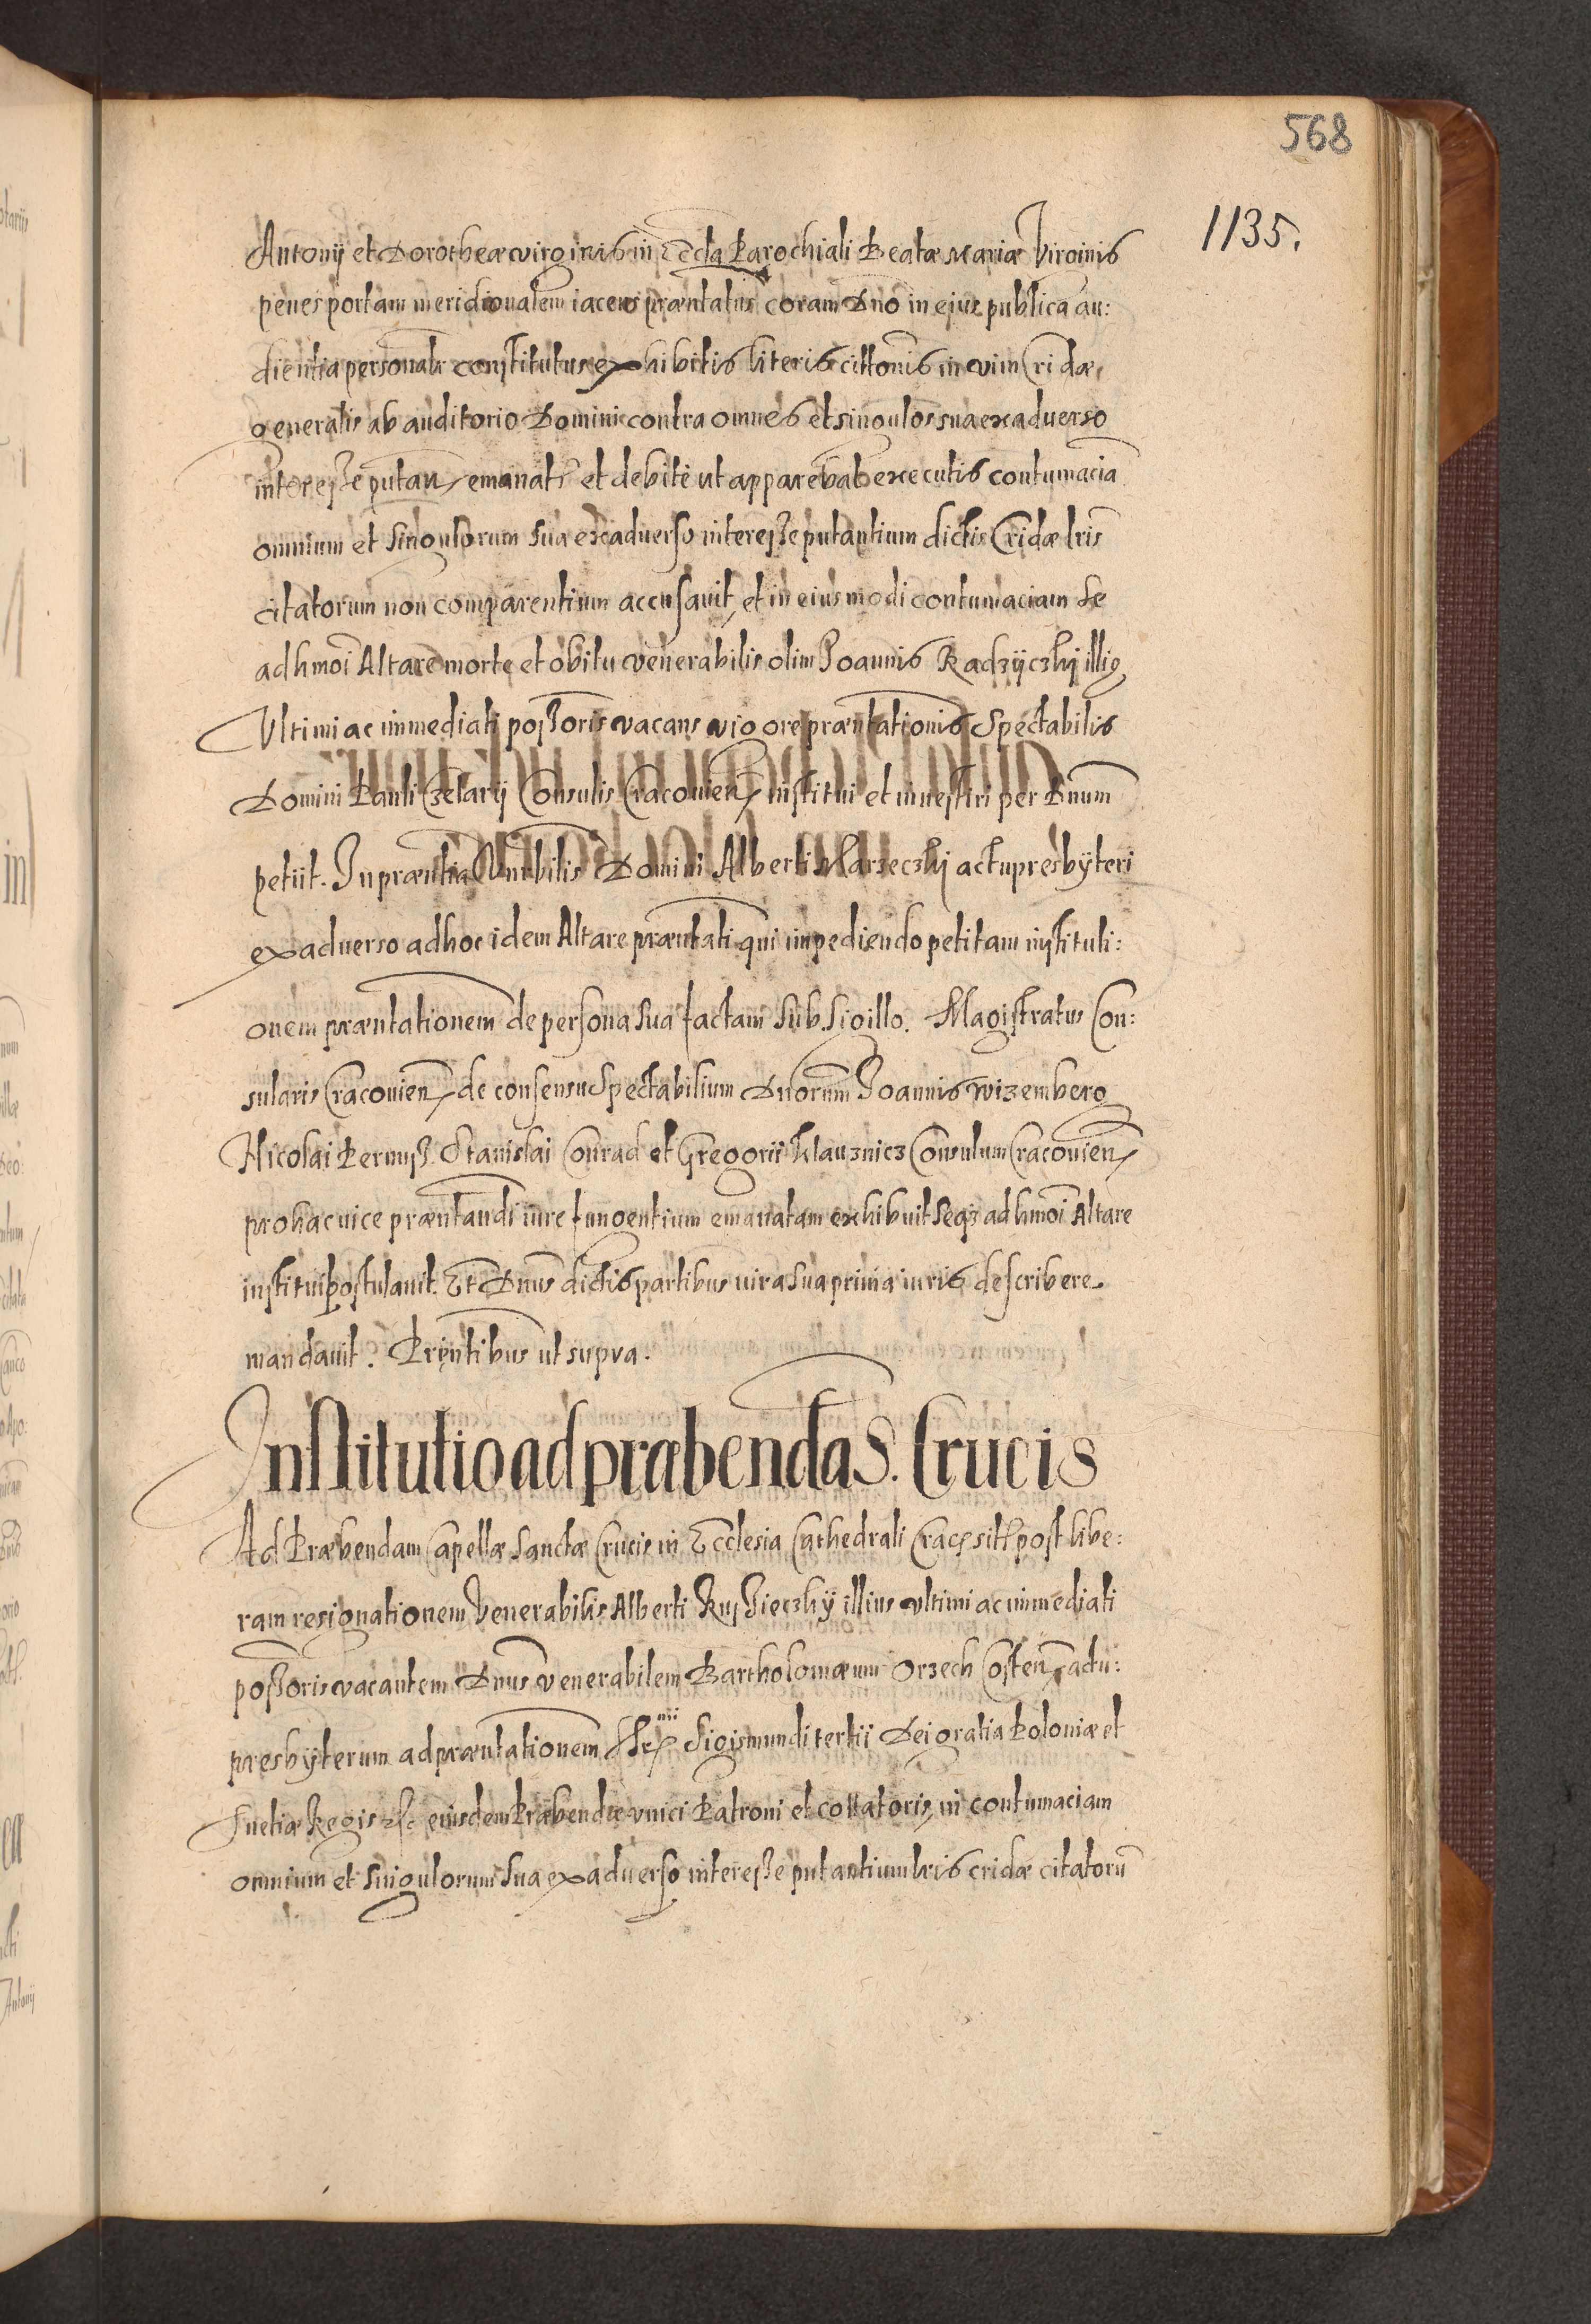 568
1135.
Antonij et Dorotheæ virginis in Eccła Parochiali Beatæ Mariæ Virginis
penes portam meridionalem iacens præntatus coram Dno in ejus publica au:
dientia personalr constitutus exhibitis literis cittonis in vim Cridæ
generalis ab auditorio Domini contra omnes et singulos sua ex adverso
interesse putan emanatis et debite ut apparebat executis contumaciã
omnium et singulorum sua ex adverso interesse putantium dictis Cridæ lris
citatorum non comparentium accusavit, et in eiusmodi contumaciam se
ad hmõi Altare morte et obitu venerabilis olim Joannis Radzijczkij illiq
Vltimi ac immediati possoris vacans vigore præntationis Spectabilis
Domini Pauli Czelarij Consulis Cracovien institui et investiri per Dnum
petiit. In præntia Vnrbilis Domini Alberti Marzeczkij actu presbÿteri
ex adverso ad hoc idem Altare præntati qui impediendo petitam instituti:
onem præntationem de persona sua factam sub sigillo. Magistratus Con:
sularis Cracovien de consensu Spectabilium Dnorum Joannis Wizemberg
Nicolai Pernus Stanislai Conrad et Gregorii Klauznicz Consulum Cracovien
pro hac vice præntandi iure fungentium emanatam exhibuit seqz ad hmõi Altare
institui postulavit. Et Dnus dictis partibus iura sua prima iuris describere
mandavit. Prẽntibus ut supra.
Institutio ad præbendã S. Crucis
Ad Præbendam Capellæ Sanctæ Crucis in Ecclesia Cathedrali Crac sitt post libe:
ram resignationem Venerabilis Alberti Kussieczkÿ illius vltimi ac immediati
possoris vacantem Dnus venerabilem Bartholomæum Orzech Costen actu:
presbÿterum ad præntationem Ser mii Sigismundi tertii Dei gratia Poloniæ et
Suetiæ Regis etc eiusdem Præbendæ vnici Patroni et collatoris, in contumaciam
omnium et singulorum sua ex adverso interesse putantium lris cridæ citatorũ